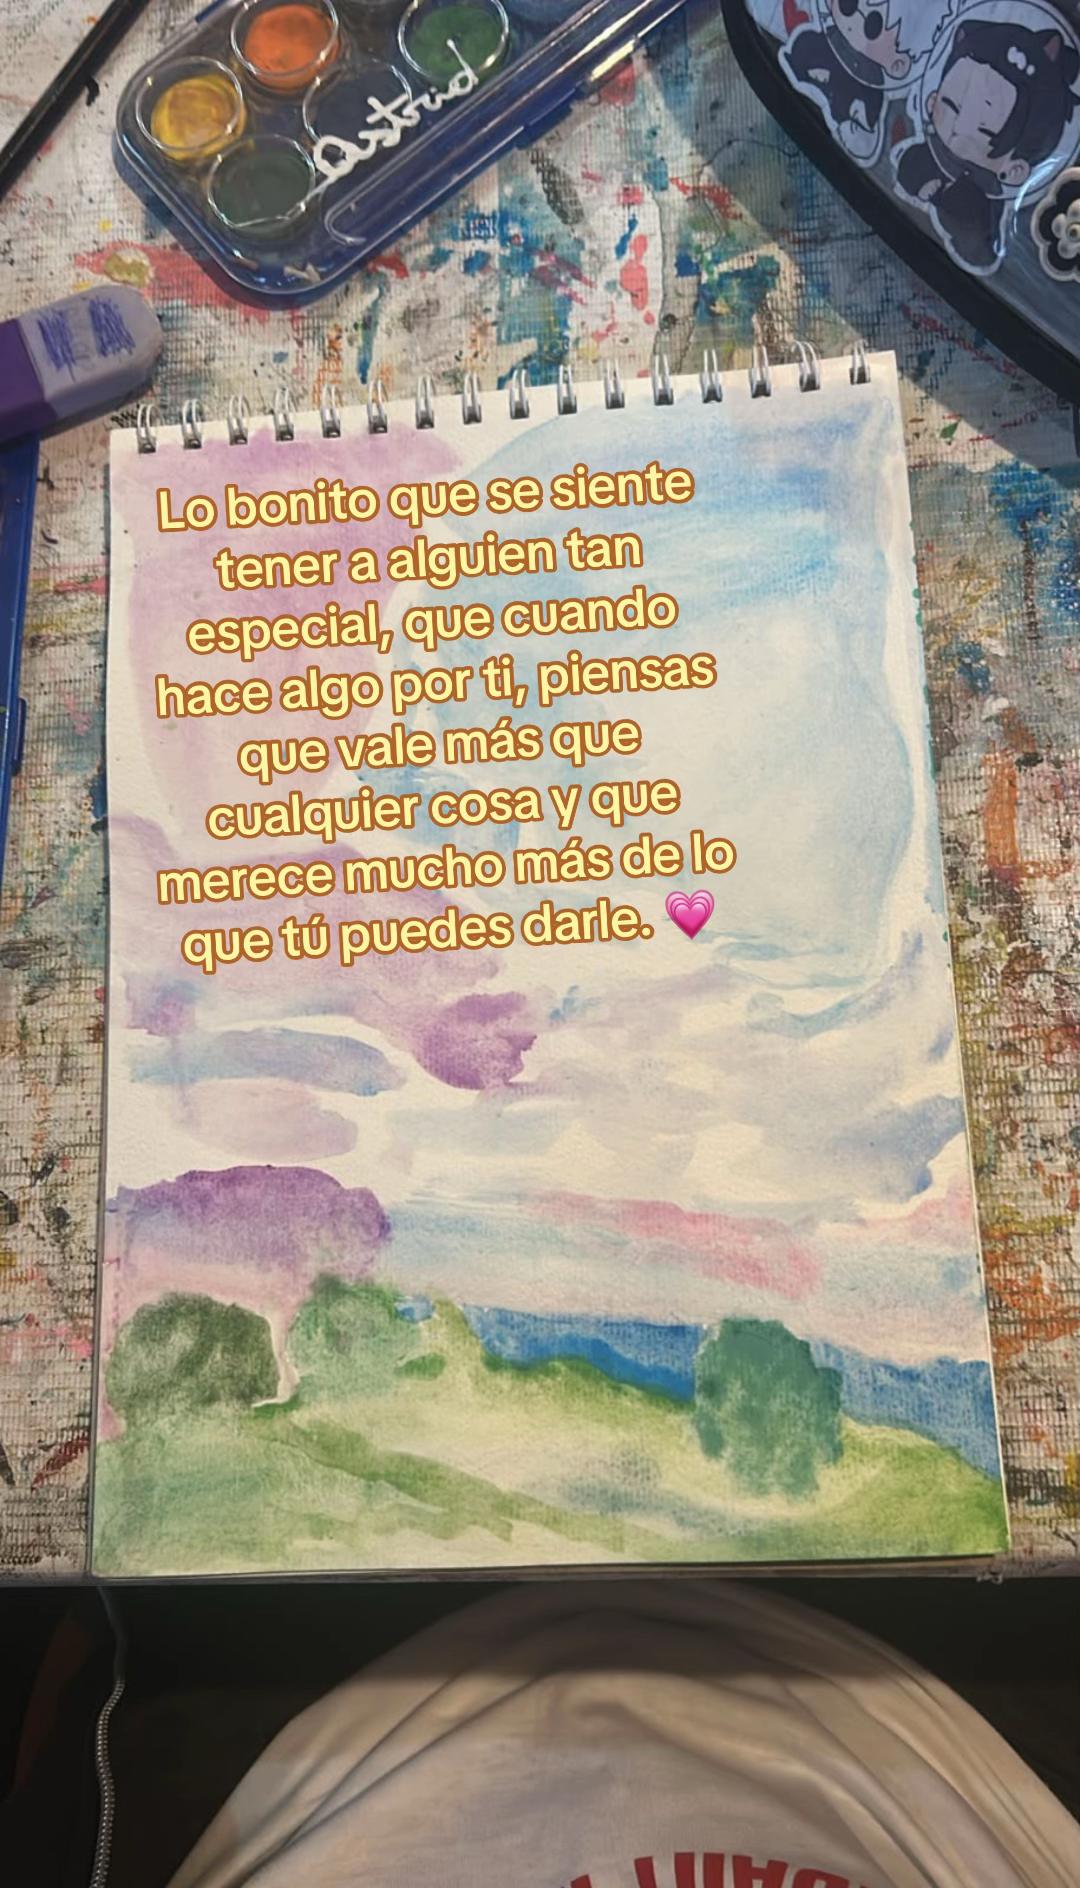 Astrid
Lo bonito que se siente
tener a alguien tan
especial, que cuando
hace algo por ti, piensas
que vale más que
cualquier cosa y que
merece mucho más de lo
que tú puedes darle. 💗